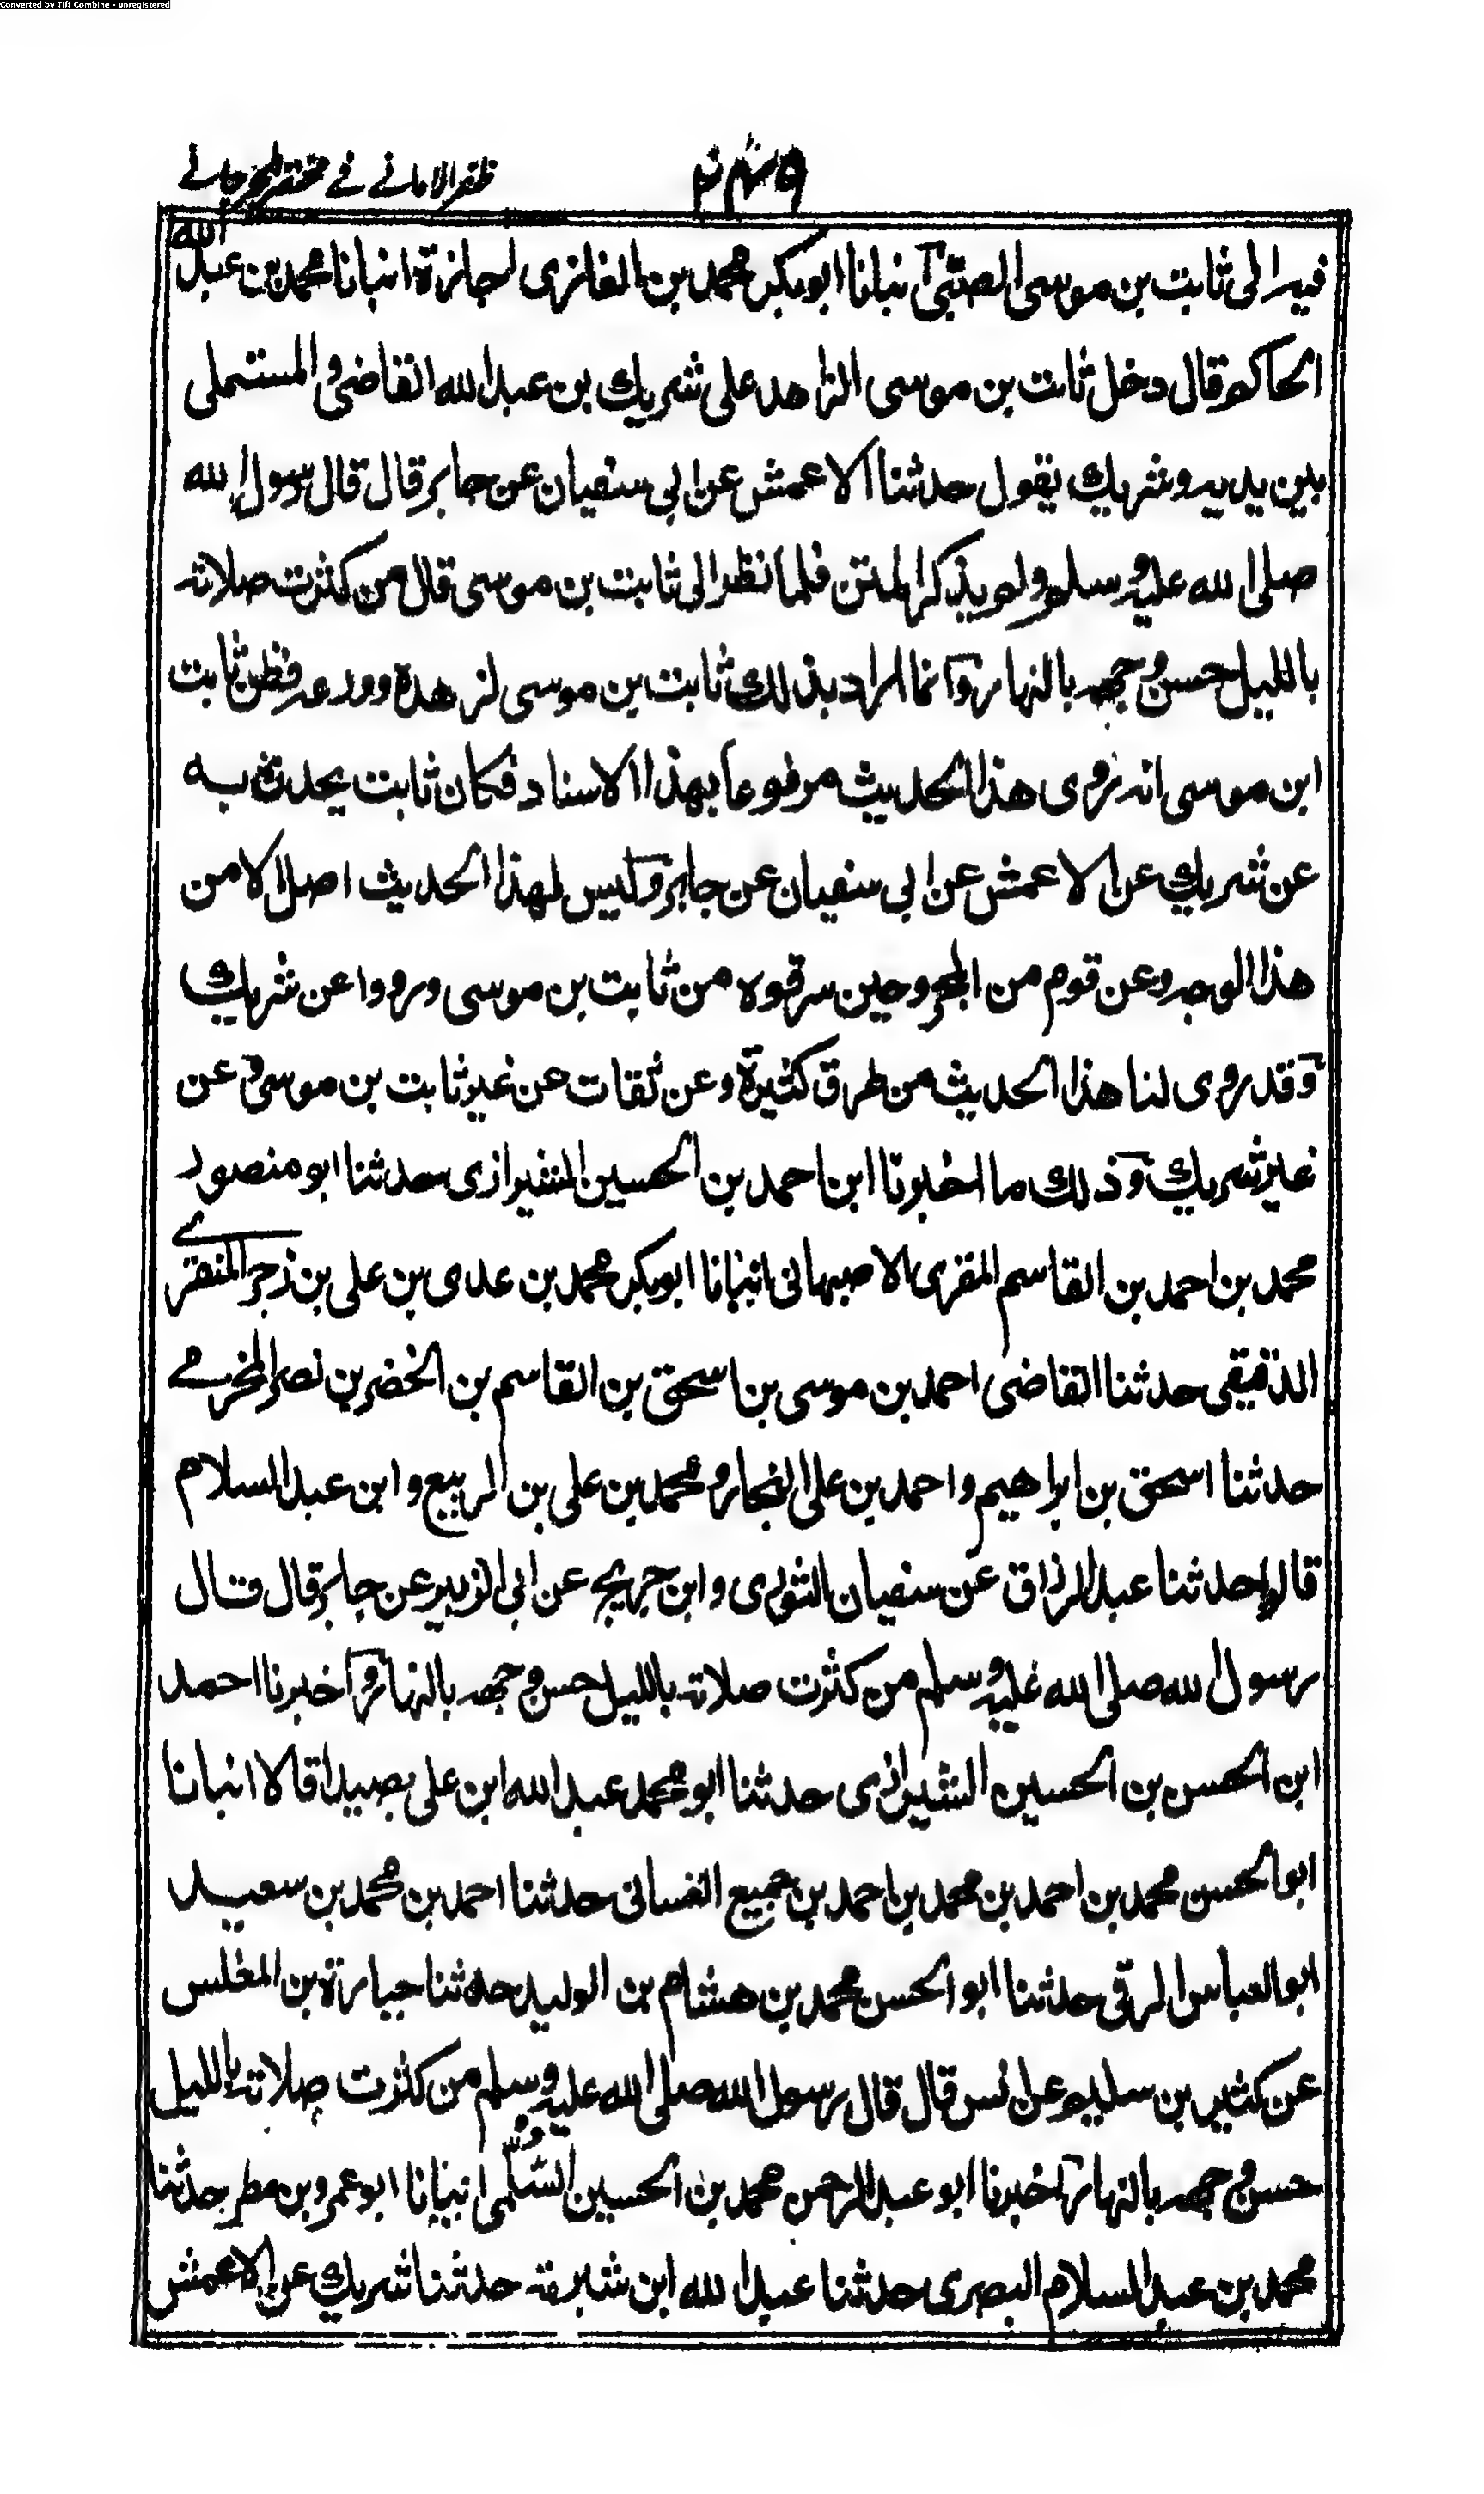 Converted by Tiff Combine - unregistered
ظفر الامانے فے مختصر الجرجانے
فيه الى ثابت بن موسى الضبى انبانا ابوبكر محمد بن الغازى اجازة انبانا محمد بن عبد الله
الحاكم قال دخل ثابت بن موسى الزاهد على شريك بن عبد الله القاضى والمستملى
بين يديه وشريك يقول حدثنا الاعمش عن ابى سفيان عن جابر قال قال رسول الله
صلى الله عليه وسلم ولم يذكر المتن فلما نظر الى ثابت بن موسى قال من كثرت صلاته
بالليل حسن وجهه بالنهار وانما اراد بذلك ثابت بن موسى لزهده وورعه فظن ثابت
ابن موسى انه روى هذا الحديث مرفوعا بهذا الاسناد فكان ثابت يحدث به
عن شريك عن الاعمش عن ابى سفيان عن جابر وليس لهذا الحديث اصل الا من
هذا الوجه وعن قوم من المجروحين سرقوه من ثابت بن موسى ورووا عن شريك
وقد روى لنا هذا الحديث من طرق كثيرة وعن ثقات عن غير ثابت بن موسى وعن
غير شريك وذلك ما اخبرنا ابن احمد بن الحسين الشيرازى حدثنا ابو منصور
محمد بن احمد بن القاسم المقرى الاصبهانى انبانا ابوبكر محمد بن عدى بن على بن زجر المنقرے
الدقيقى حدثنا القاضى احمد بن موسى بن اسحق بن القاسم بن الخضر بن نصر المخرمے
حدثنا اسحق بن ابراهيم واحمد بن على النجار ومحمد بن على بن الربيع وابن عبد السلام
قالوا حدثنا عبد الرزاق عن سفيان الثورى وابن جريج عن ابى الزبير عن جابر قال قال
رسول الله صلى الله عليه وسلم من كثرت صلاته بالليل حسن وجهه بالنهار واخبرنا احمد
ابن الحسن بن الحسين الشيرازى حدثنا ابو محمد عبد الله ابن على بصيدا قالا انبانا
ابو الحسن محمد بن احمد بن محمد بن احمد بن جميع الغسانى حدثنا احمد بن محمد بن سعيد
ابو العباس الرقى حدثنا ابو الحسن محمد بن هشام بن الوليد حدثنا جبارة بن المغلس
عن كثير بن سليم عن انس قال قال رسول الله صلى الله عليه وسلم من كثرت صلاته بالليل
حسن وجهه بالنهار اخبرنا ابو عبد الرحمن محمد بن الحسين السلمى انبانا ابو عمرو بن مطر حدثنا
محمد بن عبد السلام البصرى حدثنا عبد الله ابن شبرمة حدثنا شريك عن الاعمش